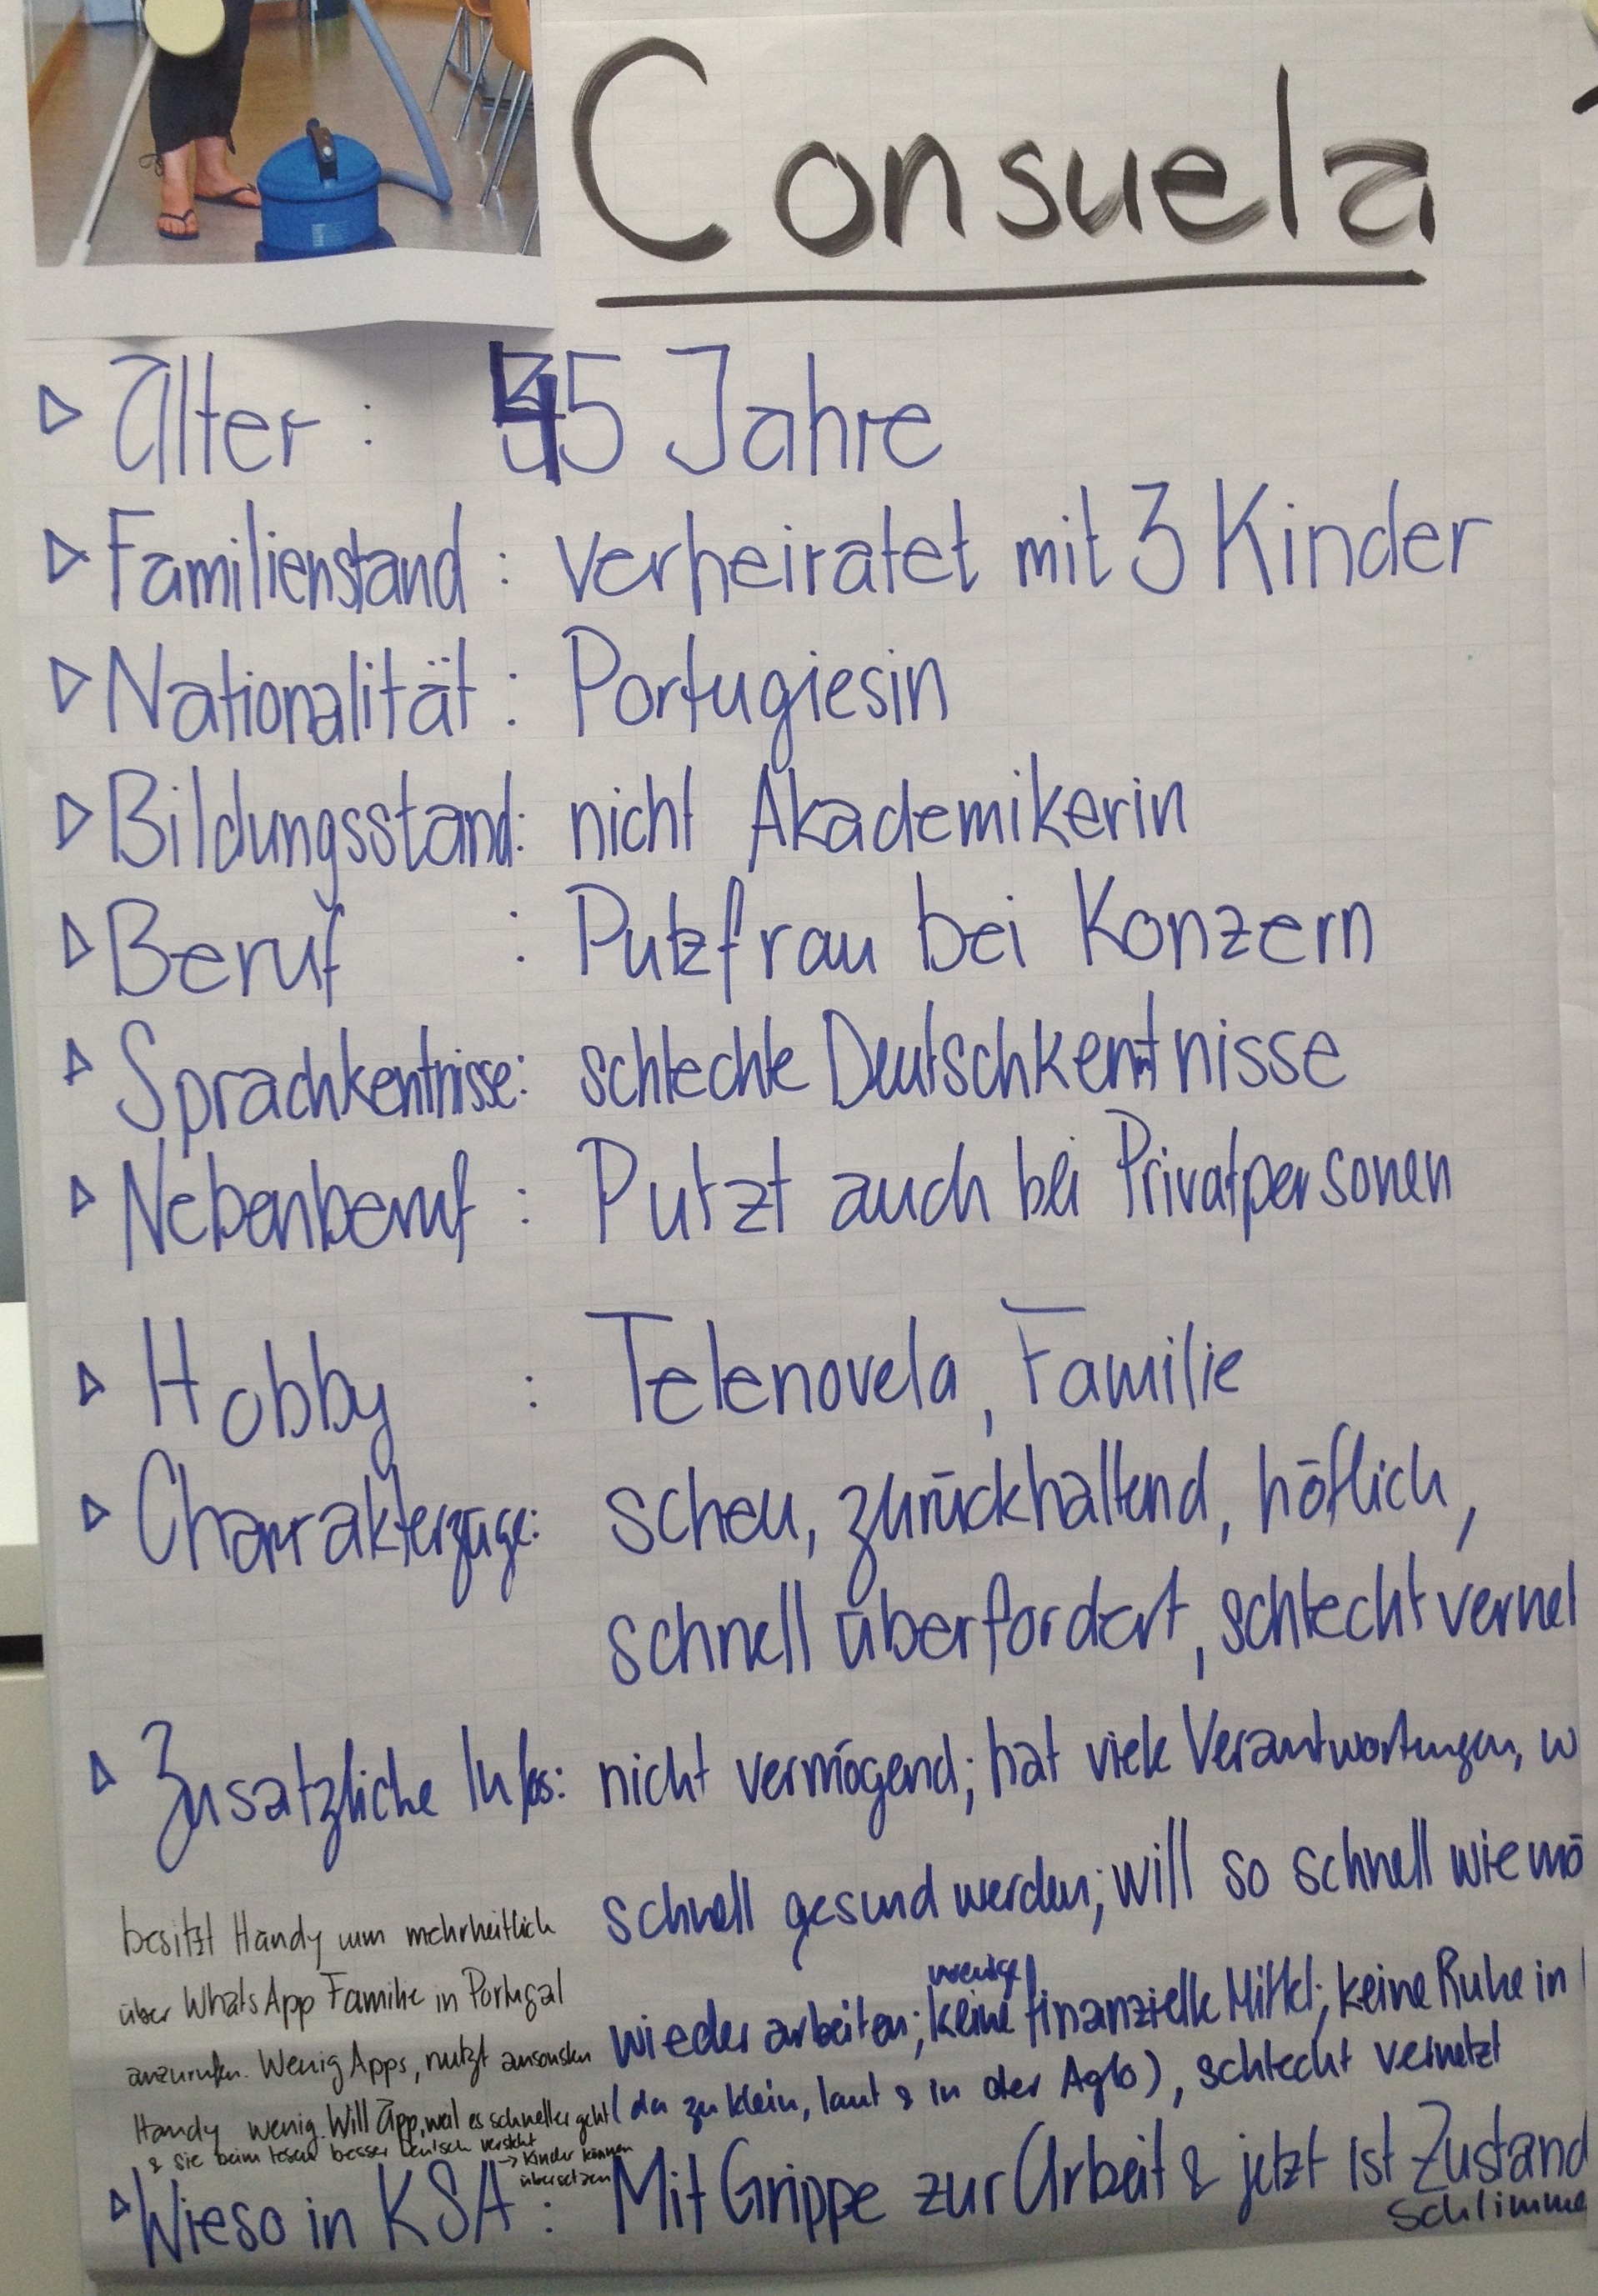 Consuela
Alter : 45 Jahre
Familienstand : verheiratet mit 3 Kinder
Nationalität : Portugiesin
Bildungsstand: nicht Akademikerin
Beruf : Putzfrau bei Konzern
Sprachkentnisse: schlechte Deutschkentnisse
Nebenberuf : Putzt auch bei Privatpersonen
Hobby : Telenovela, Familie
Charrakterzüge: scheu, zurückhaltend, höflich,
schnell überfordert, schlecht vernet
Zusätzliche Infos: nicht vermögend; hat viele Verantwortungen, w
schnell gesund werden; will so schnell wie mö
wenige
wieder arbeiten; keine finanzielle Mittel; keine Ruhe in
(da zu klein, laut & in der Aglo), schlecht vernetzt
besitzt Handy um mehrheitlich
über WhatsApp Familie in Portugal
anzurufen. Wenig Apps, nutzt ansonsten
Handy wenig. Will App, weil es schneller geht
& sie beim lesen besser Deutsch versteht
→ Kinder können
übersetzen
Wieso in KSA : Mit Grippe zur Arbeit & jetzt ist Zustand
schlimme